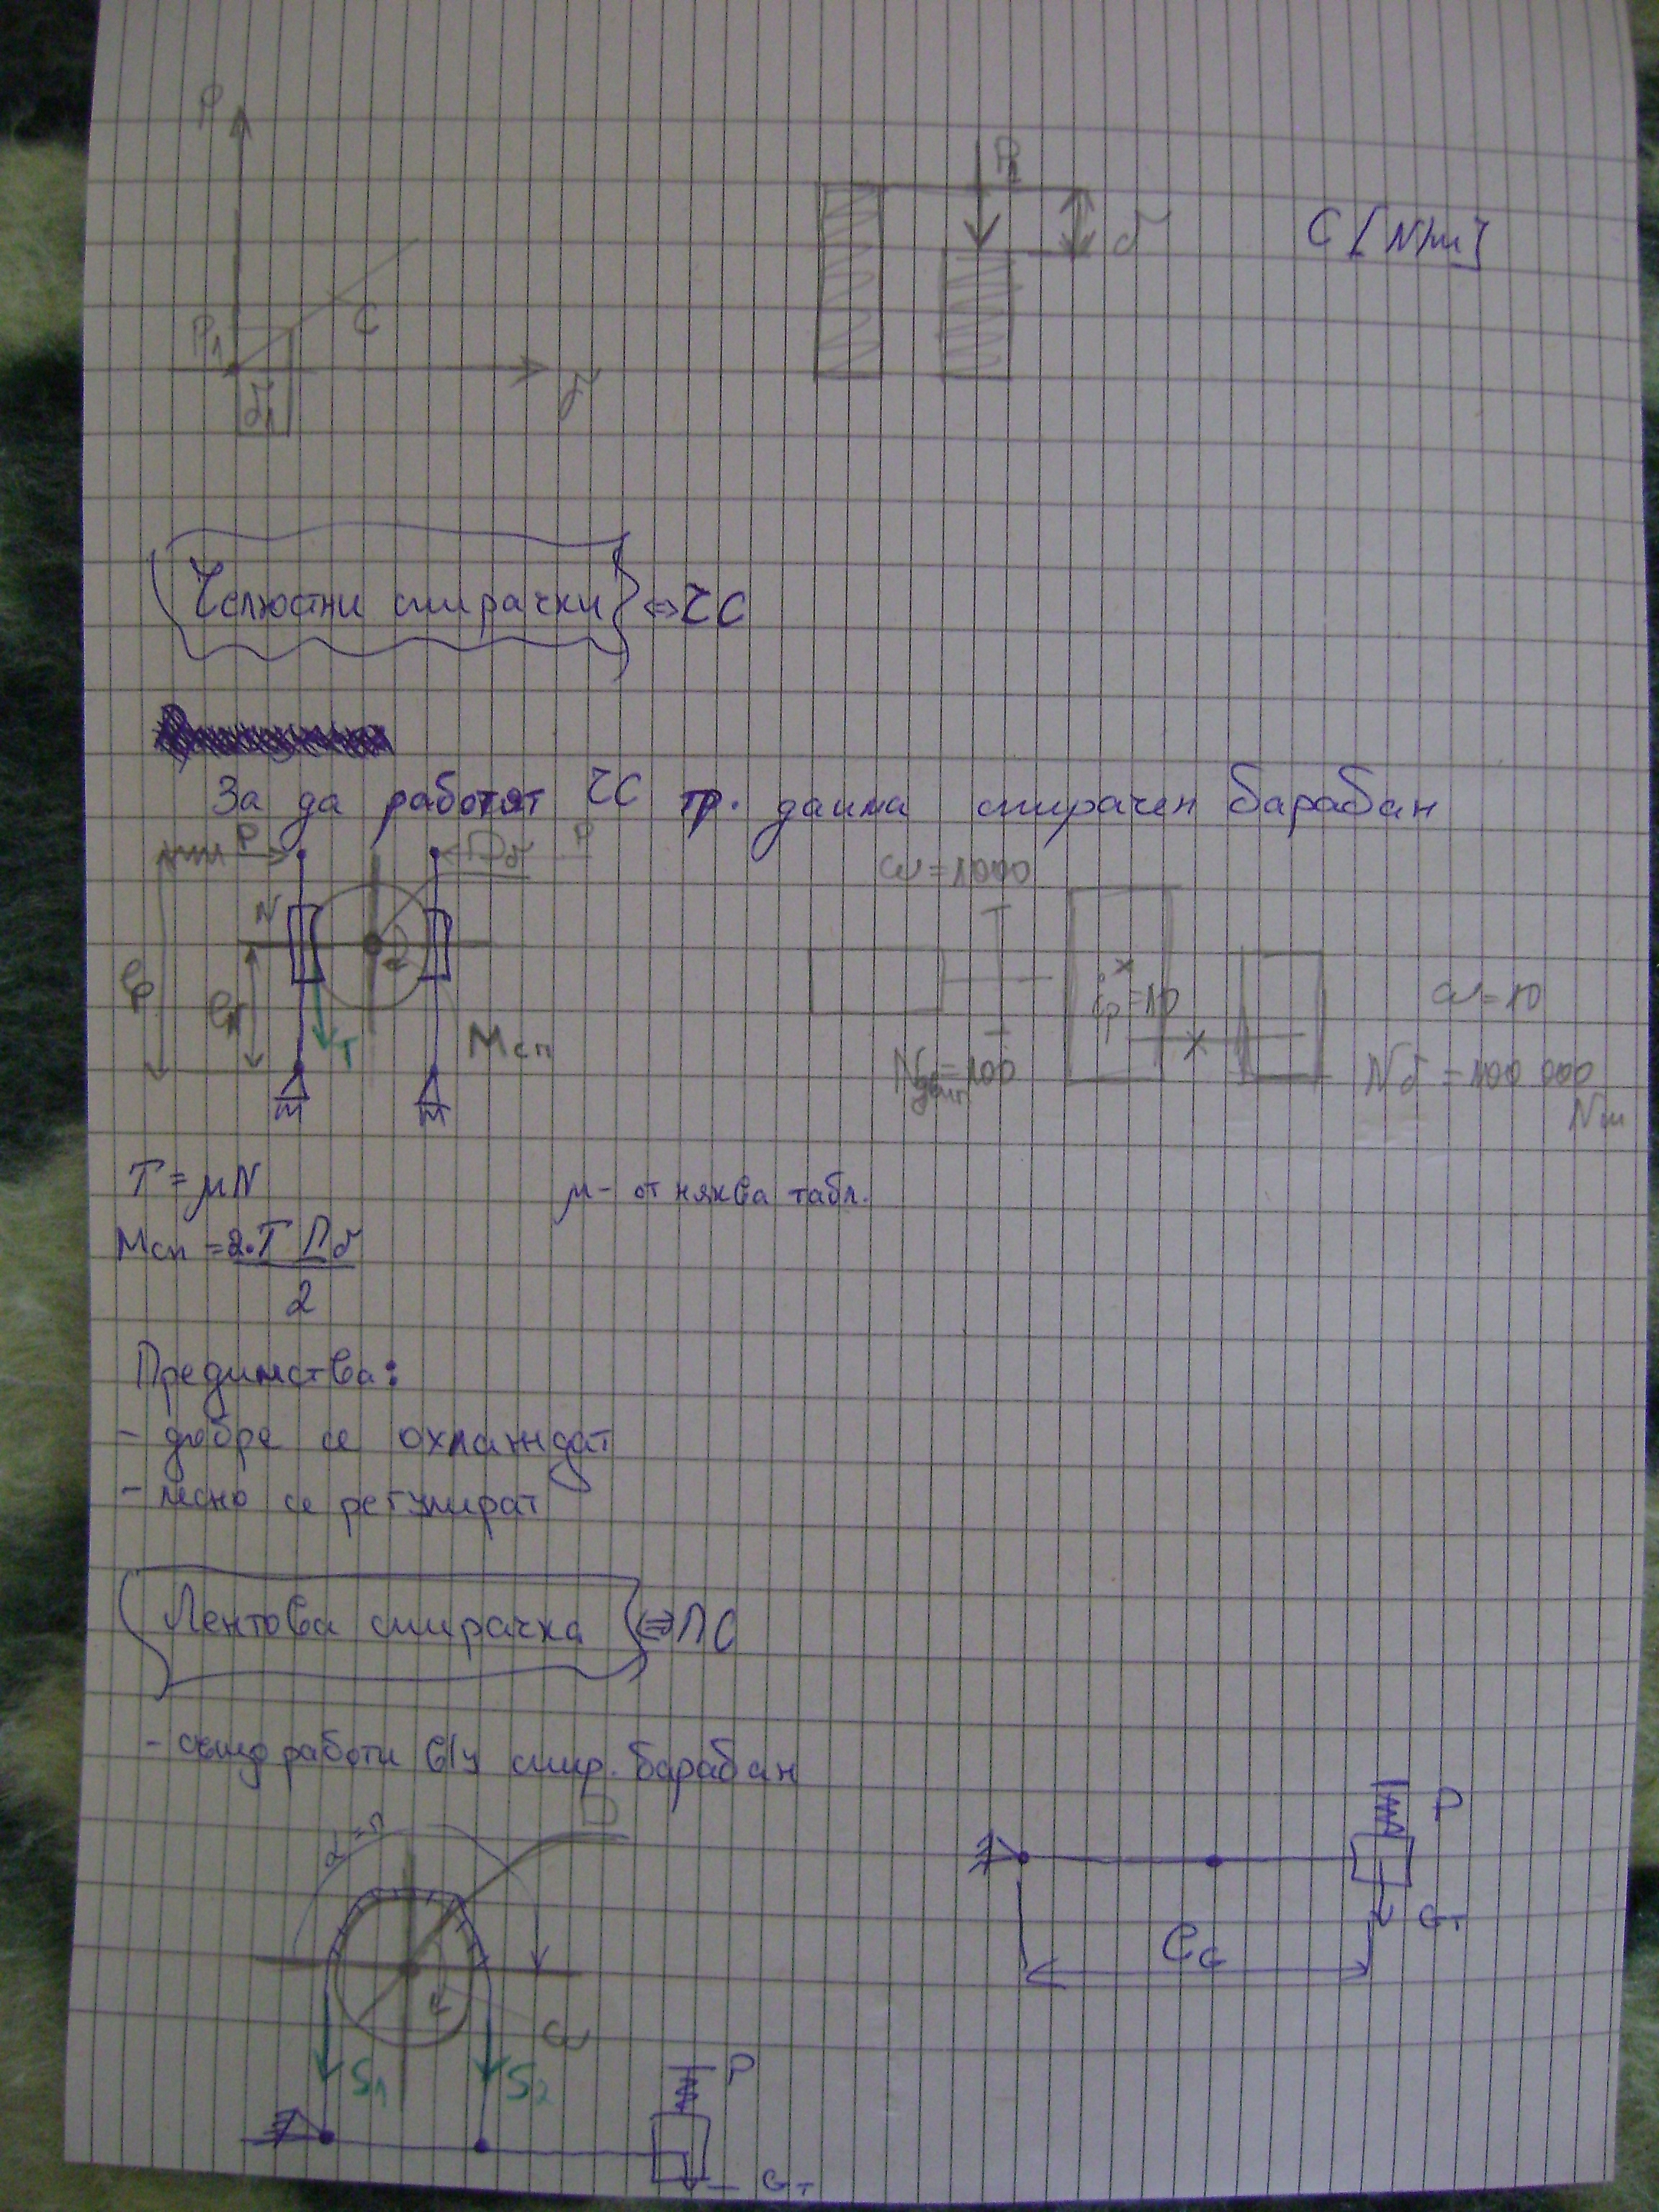 P
P1
δ
C [N/m]
P1
C
δ1
δ
Челюстни спирачки <=> ЧС
За да работят ЧС тр. да има спирачен барабан
P
Dδ
P
ω=1000
N
lp
lN
T
Mсп
iр=10
ω=10
Nдвиг=100
Nδ=100 000
Nm
T=μN
μ- от няква табл.
Mсп=2.T Dδ
2
Предимства:
- добре се охлаждат
- лесно се регулират
Лентова спирачка <=> ЛС
- също работи в/у спир. барабан
D
α=π
P
Gт
lG
ω
S1
S2
P
Gт